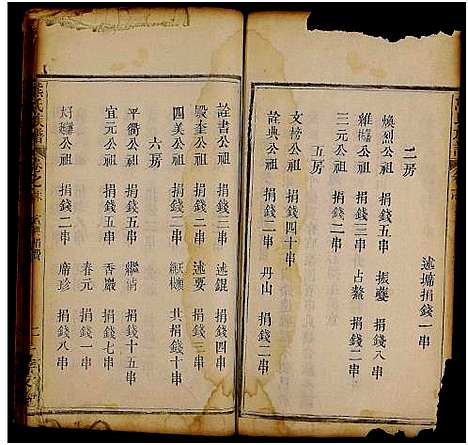 述墉捐錢一串
二房
煥烈公祖 捐錢五串 振夔 捐錢八串
雍公祖 捐錢二串 占鰲 捐錢二串
三元公祖 捐錢二串
五房
文榜公祖 捐錢四十串
詮典公祖 捐錢二串 丹山 捐錢二串
詮書公祖 捐錢三串 述錕 捐錢四串
毀奎公祖 捐錢二串 述要 捐錢三串
四美公祖 捐錢四串 共捐錢十串
六房
平衢公祖 捐錢五串 繼清 捐錢十五串
宜元公祖 捐錢五串 香嚴 捐錢七串
春元 捐錢一串
公祖 捐錢二串 席珍 捐錢八串
氏族譜